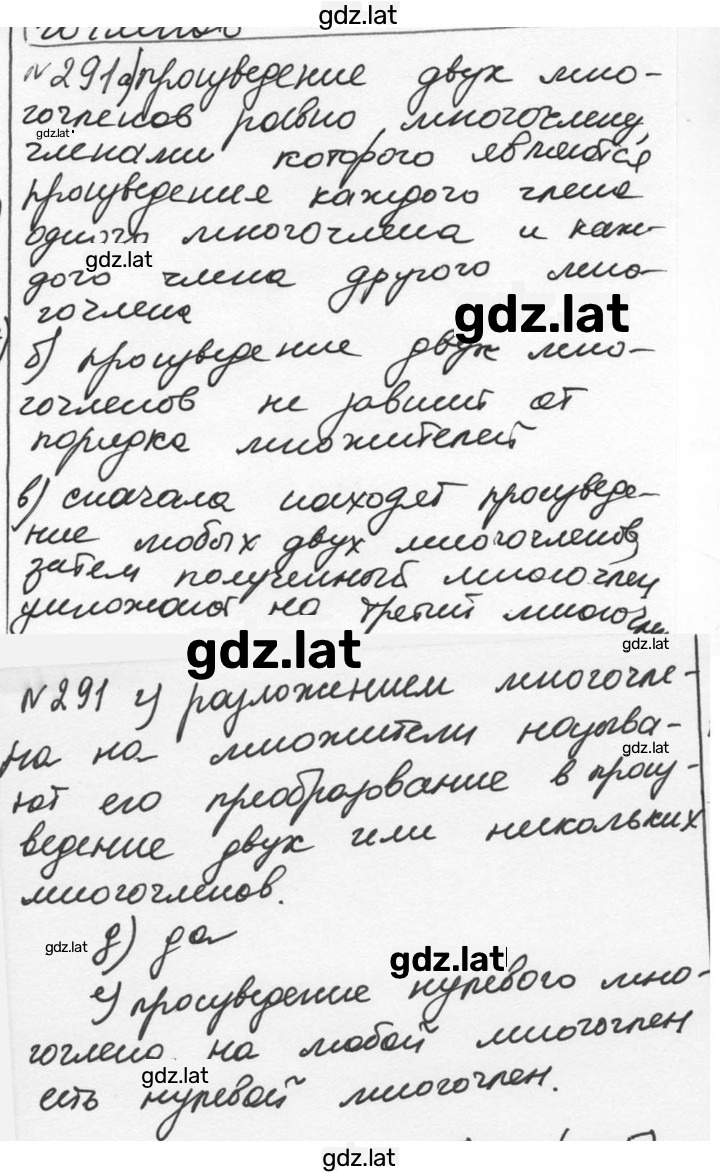 gdz.lat
№291 а) произведение двух мно-
гочленов равно многочлену,
gdz.lat
членами которого являются
произведения каждого члена
одного многочлена и каж-
gdz.lat
дого члена другого мно-
гочлена
gdz.lat
б) произведение двух мно-
гочленов не зависит от
порядка множителей
в) сначала находят произведе-
ние любых двух многочленов,
затем полученный многочлен
умножают на третий многочлен
gdz.lat
gdz.lat
№291 г) разложением многочле-
на на множители называ-
gdz.lat
ют его преобразование в произ-
ведение двух или нескольких
многочленов.
gdz.lat
д) да
gdz.lat
е) произведение нулевого мно-
гочлена на любой многочлен
gdz.lat
есть нулевой многочлен.
gdz.lat